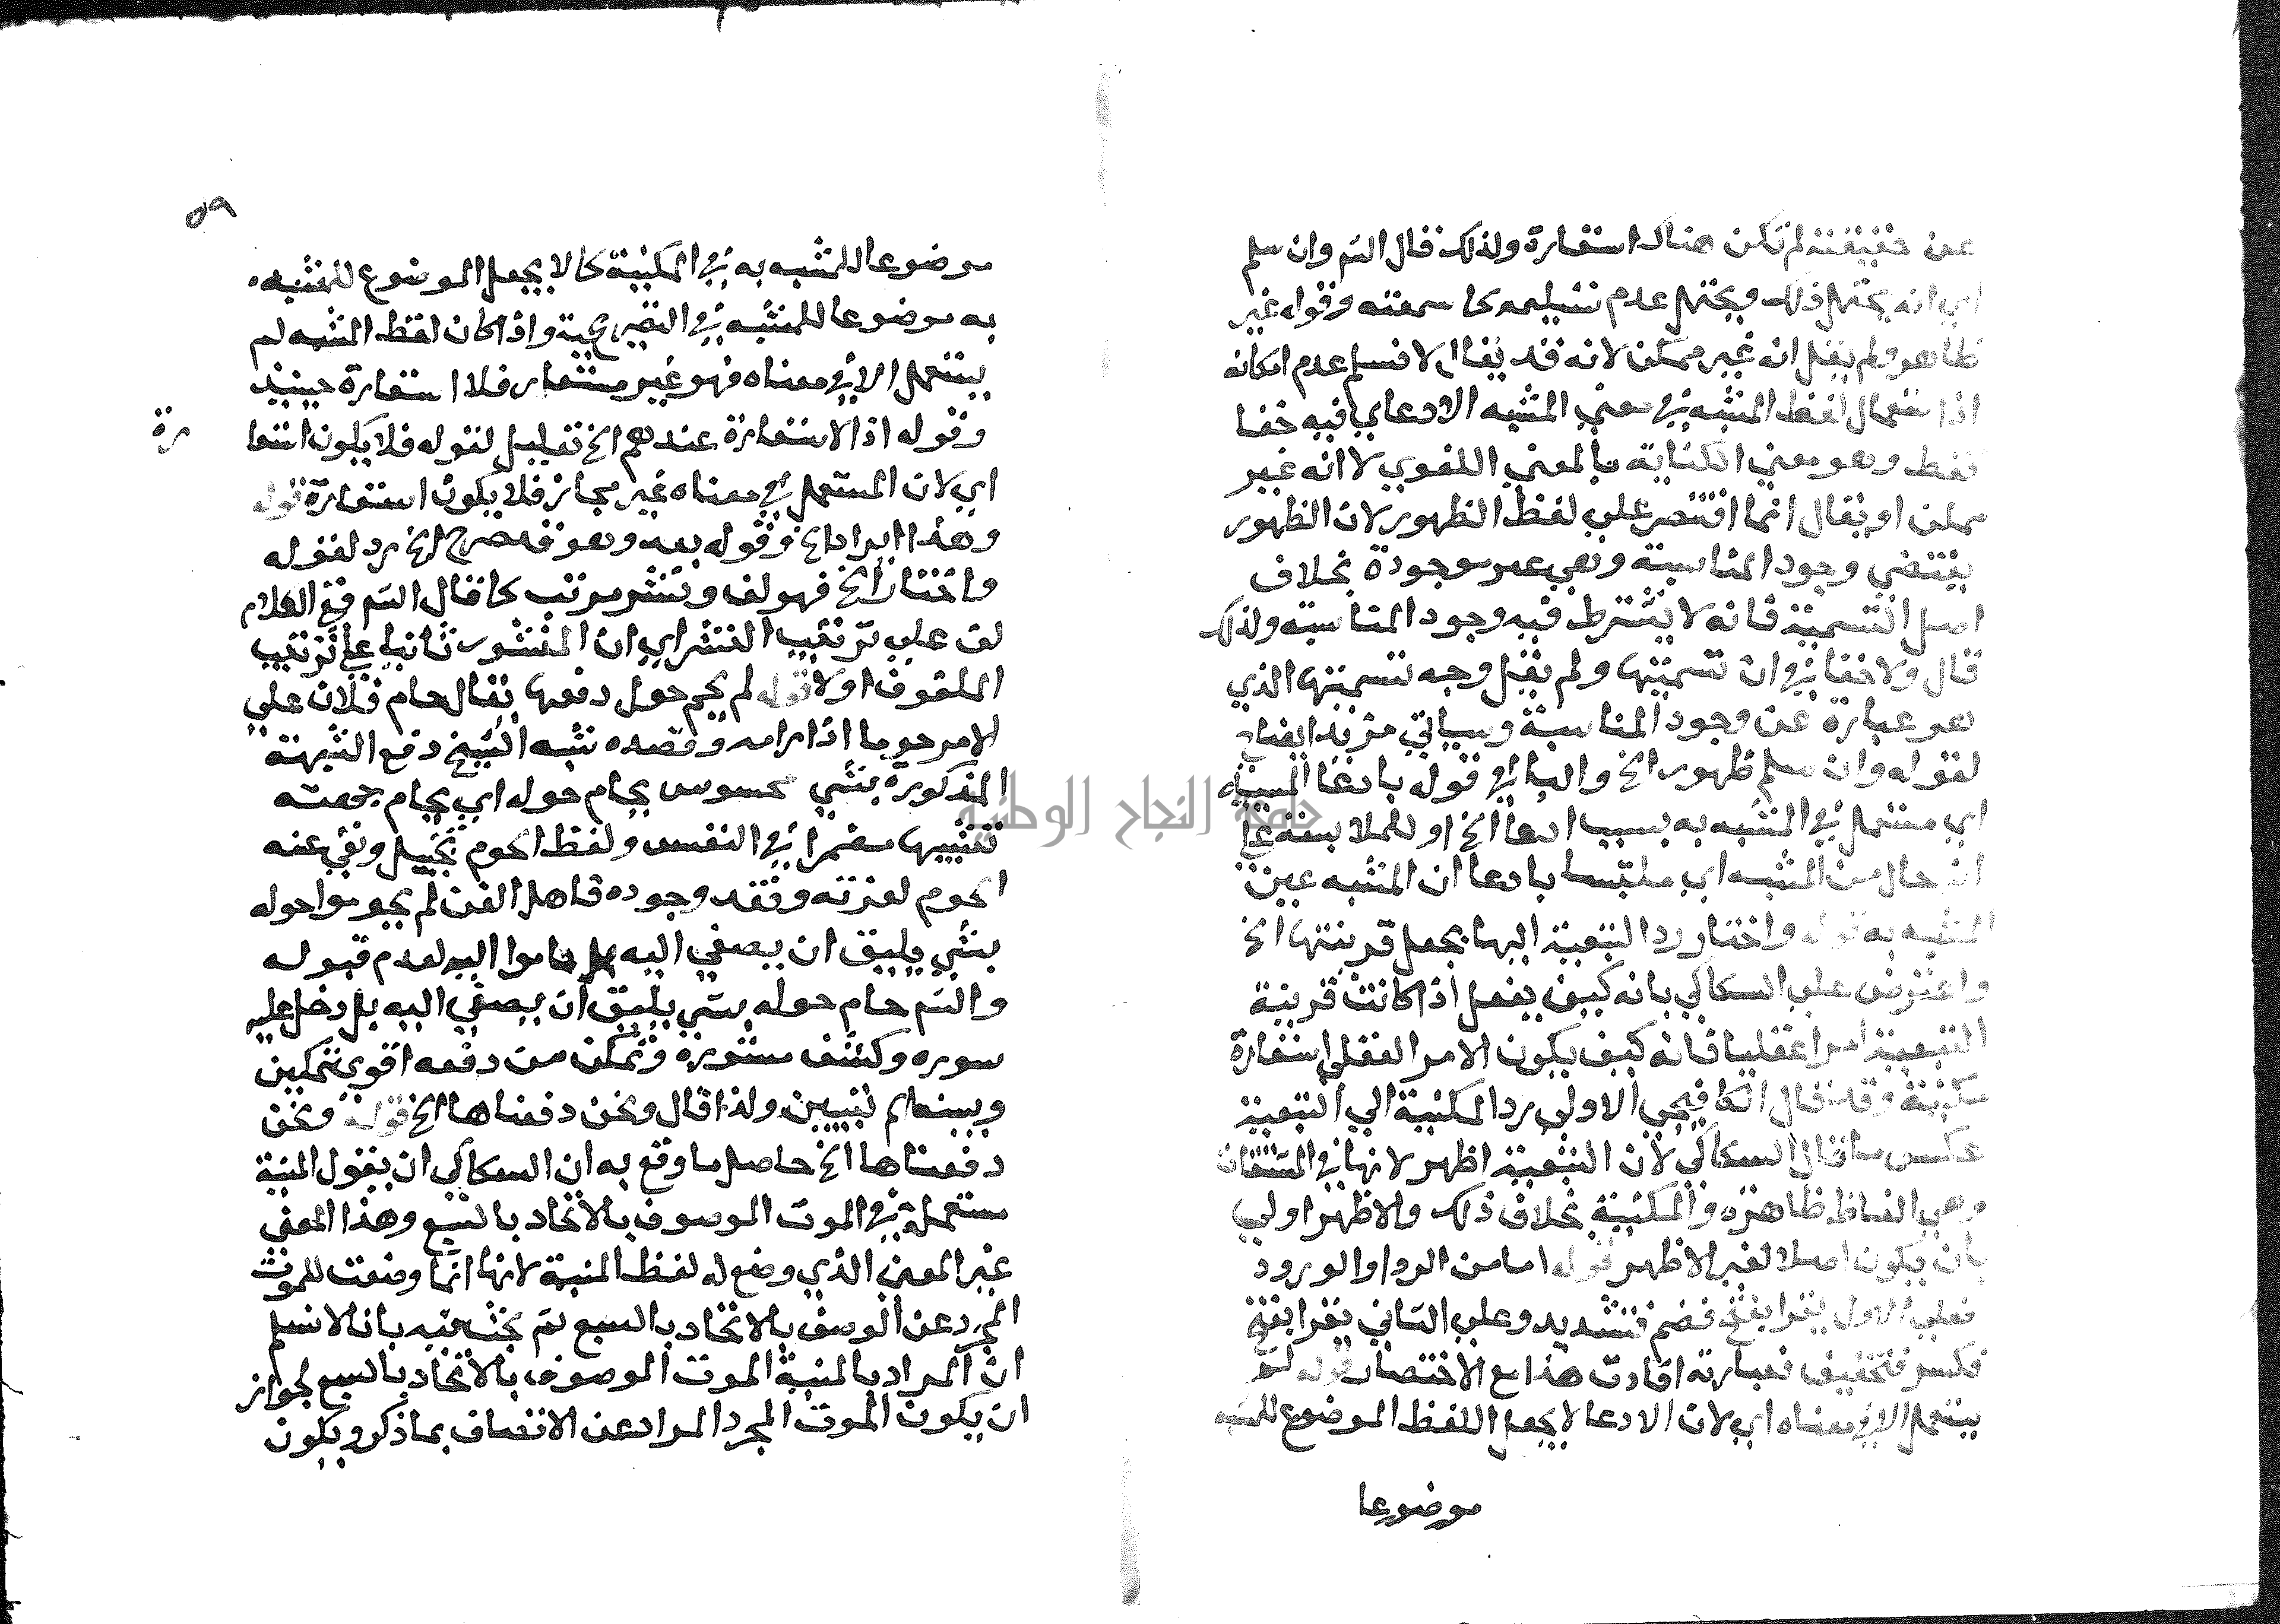 عن حقيقته لم تكن هناك استعارة ولذلك قال الشم وان سلم
اي انه يحتمل ذلك ويحتمل عدم تسليمه كما سمعته وقوله غير
ظاهر ولم يقل انه غير ممكن لانه قد يقال لا نسلم عدم امكانه
اذا استعمال لفظ المشبه في معني المشبه الادعاي فيه خفا
فقط وهو معني الكناية بالمعني اللغوي لا انه غير
ممكن او يقال انما اقتصر علي لفظ الظهور لان الظهور
يقتضي وجود المناسبة وهي غير موجودة بخلاف
اصل التسمية فانه لا يشترط فيه وجود المناسبة ولذلك
قال ولا خفا في ان تسميتها ولم يقل وجه تسميتها الذي
هو عبارة عن وجود المناسبة وسياتي مزيد ايضاح
لقوله وان سلم ظهور الخ والبا في قوله بادعا السببية
اي مستعمل في المشبه به بسبب ادعا الخ او للملابسة علي
انه حال من المشبه اي ملتبسا بادعا ان المشبه عين
المشبه به قوله واختار رد التبعية اليها بجعل قرينتها الخ
واعترض علي السكاكي بانه كيف يفعل اذا كانت قرينة
التبعية امرا عقليا فانه كيف يكون الامر العقلي استعارة
مكنية وقد قال الكافيجي الاولي رد المكنية الي التبعية
عكس ما قال السكاكي لان التبعية اظهر لانها في المشتقات
وهي الفاظ ظاهرة والمكنية بخلاف ذلك والاظهر اولي
بان يكون اصلا لغير الاظهر قوله اما من الرد او الورود
فعلي الاول يقرا بفتح فضم فتشديد وعلي الثاني يقرا بفتح
فكسر فتخفيف فعبارته افادت هذا مع الاختصار قوله لم
يستعمل الا في معناه اي لان الادعا لا يجعل اللفظ الموضوع للمشبه
موضوعا
٥٩
موضوعا للمشبه به في المكنية كما لا يجعل الموضوع للمشبه
به موضوعا للمشبه في التصريحية واذا كان لفظ المشبه لم
يستعمل الا في معناه فهو غير مستعار فلا استعارة حينيذ
وقوله اذ الاستعارة عندهم الخ تعليل لقوله فلا يكون استعا
رة
اي لان المستعمل في معناه غير مجاز فلا يكون استعارة قوله
وهذا ايراد الخ وقوله بعد وهو قد صرح الخ رد لقوله
واختار الخ فهو لف ونشر مرتب كما قال الشم فتح الكلام
لف علي ترتيب النشر اي ان المنشور ثانيا علي ترتيب
الملفوف اولا قوله لم يحم حول دفعها يقال حام فلان علي
الامر حوما اذا رامه وقصده شبه الشيخ دفع الشبهة
المذكورة بشي محسوس يحام حوله اي يحام بجهته
تشبيها مضمرا في النفس ولفظ الحوم تخييل ونفي عنه
الحوم لعزته وفقد وجوده فاهل الفن لم يحوموا حوله
بشي يليق ان يصغي اليه بل حاموا اليه لعدم قبوله
والشم حام حوله بشي يليق ان يصغي اليه بل دخل عليه
سوره وكشف مستوره وتمكن من دفعه اقوي تمكين
وبينه اتم تبيين ولذا قال ونحن دفعناها الخ قوله ونحن
دفعناها الخ حاصل ما وقع به ان السكاكي ان يقول المنية
مستعملة في الموت الموصوف بالاتحاد بالسبع وهذا المعني
غير المعني الذي وضع له لفظ المنية لانها انما وضعت للموت
المجرد عن الوصف بالاتحاد بالسبع ثم بحث فيه بانا لا نسلم
ان المراد بالمنية الموت الموصوف بالاتحاد بالسبع لجواز
ان يكون الموت المجرد المراد عن الاتصاف بما ذكر ويكون
جامعة النجاح الوطنية